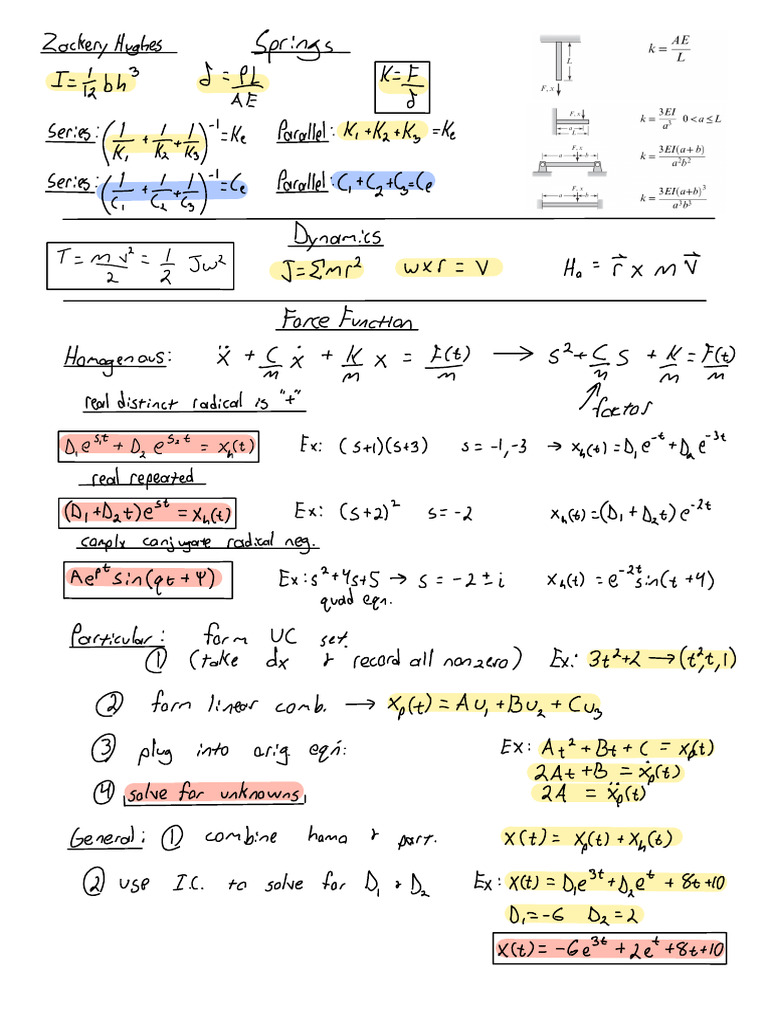 Zackery Hughes
Springs
I = 1/12 bh³
δ = PL/AE
K = F/δ
Series: (1/K₁ + 1/K₂ + 1/K₃)⁻¹ = Ke
Parallel: K₁ + K₂ + K₃ = Ke
Series: (1/C₁ + 1/C₂ + 1/C₃)⁻¹ = Ce
Parallel: C₁ + C₂ + C₃ = Ce
L
F, x
k = AE/L
F, x
a
L
k = 3EI/a³ 0 < a ≤ L
F, x
a
b
k = 3EI(a + b)/a²b²
F, x
a
b
k = 3EI(a+b)³/a³b³
Dynamics
T = mv²/2 = 1/2 Jω²
J = Σmr²
ω x r = V
Ha = r⃗ x m V⃗
Force Function
Homogenous: ẍ + C/m ẋ + K/m x = F(t)/m → s² + C/m s + K/m = F(t)/m
factor
real distinct radical is "+"
D₁e^(s₁t) + D₂e^(s₂t) = xh(t) Ex: (s+1)(s+3) s = -1, -3 → xh(t) = D₁e^(-t) + D₂e^(-3t)
real repeated
(D₁+D₂t)e^(st) = xh(t) Ex: (s+2)² s = -2 xh(t) = (D₁ + D₂t)e^(-2t)
complx conjugate radical neg.
Ae^(pt) sin(qt + Ψ) Ex: s²+4s+5 → s = -2 ± i xh(t) = e^(-2t) sin(t + 4)
quad eqn.
Particular: form UC set.
① (take dx & record all nonzero) Ex: 3t²+2 → (t², t, 1)
② form linear comb. → xp(t) = Au₁ + Bu₂ + Cu₃
③ plug into orig. eqn: Ex: At² + Bt + C = xp(t)
2At + B = ẋp(t)
④ solve for unknowns 2A = ẍp(t)
General: ① combine homo & part. x(t) = xp(t) + xh(t)
② use I.C. to solve for D₁ & D₂ Ex: x(t) = D₁e^(3t) + D₂e^t + 8t + 10
D₁ = -6 D₂ = 2
x(t) = -6e^(3t) + 2e^t + 8t + 10